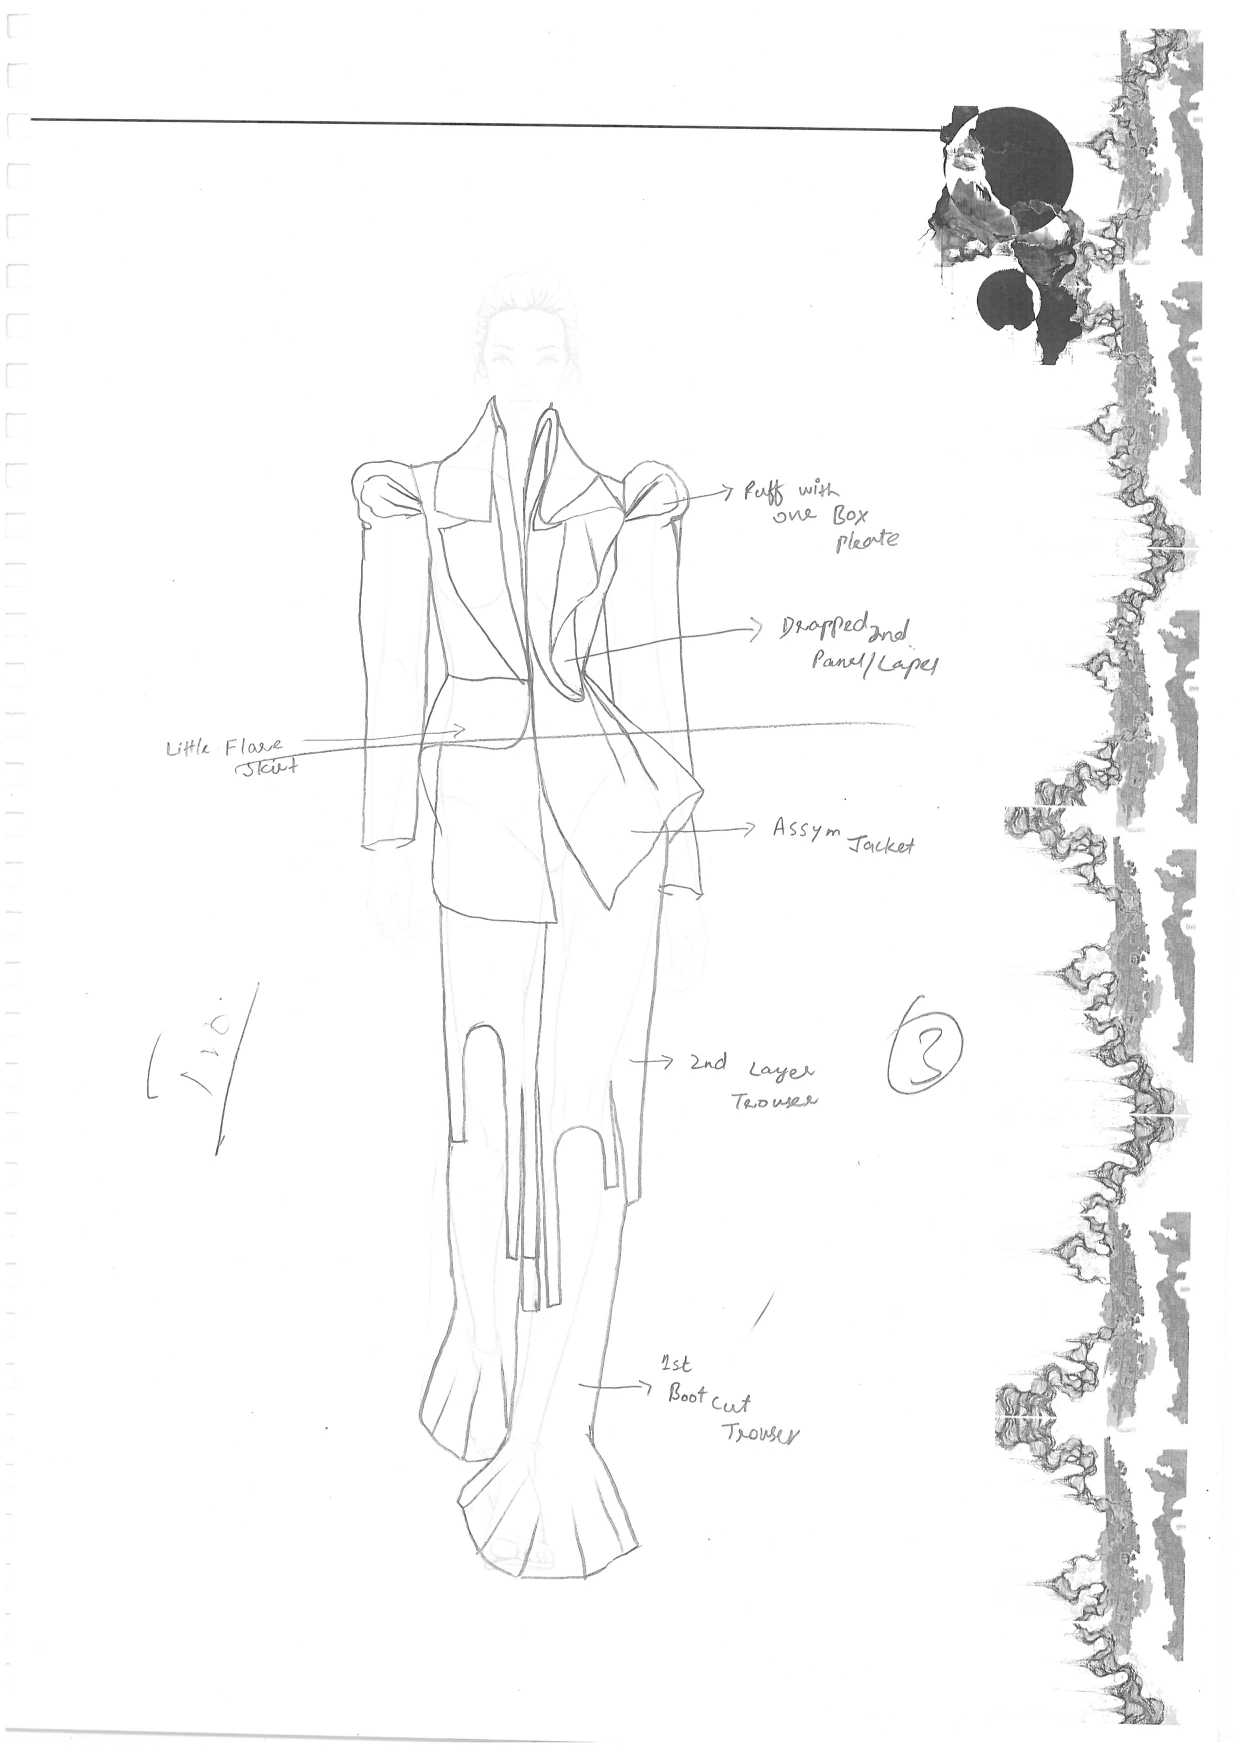 Puff with
one Box
pleate
Drapped 2nd
Panel/Lapel
Little Flare
Skirt
Assym Jacket
2nd Layer
Trouser
3
1st
Boot cut
Trouser